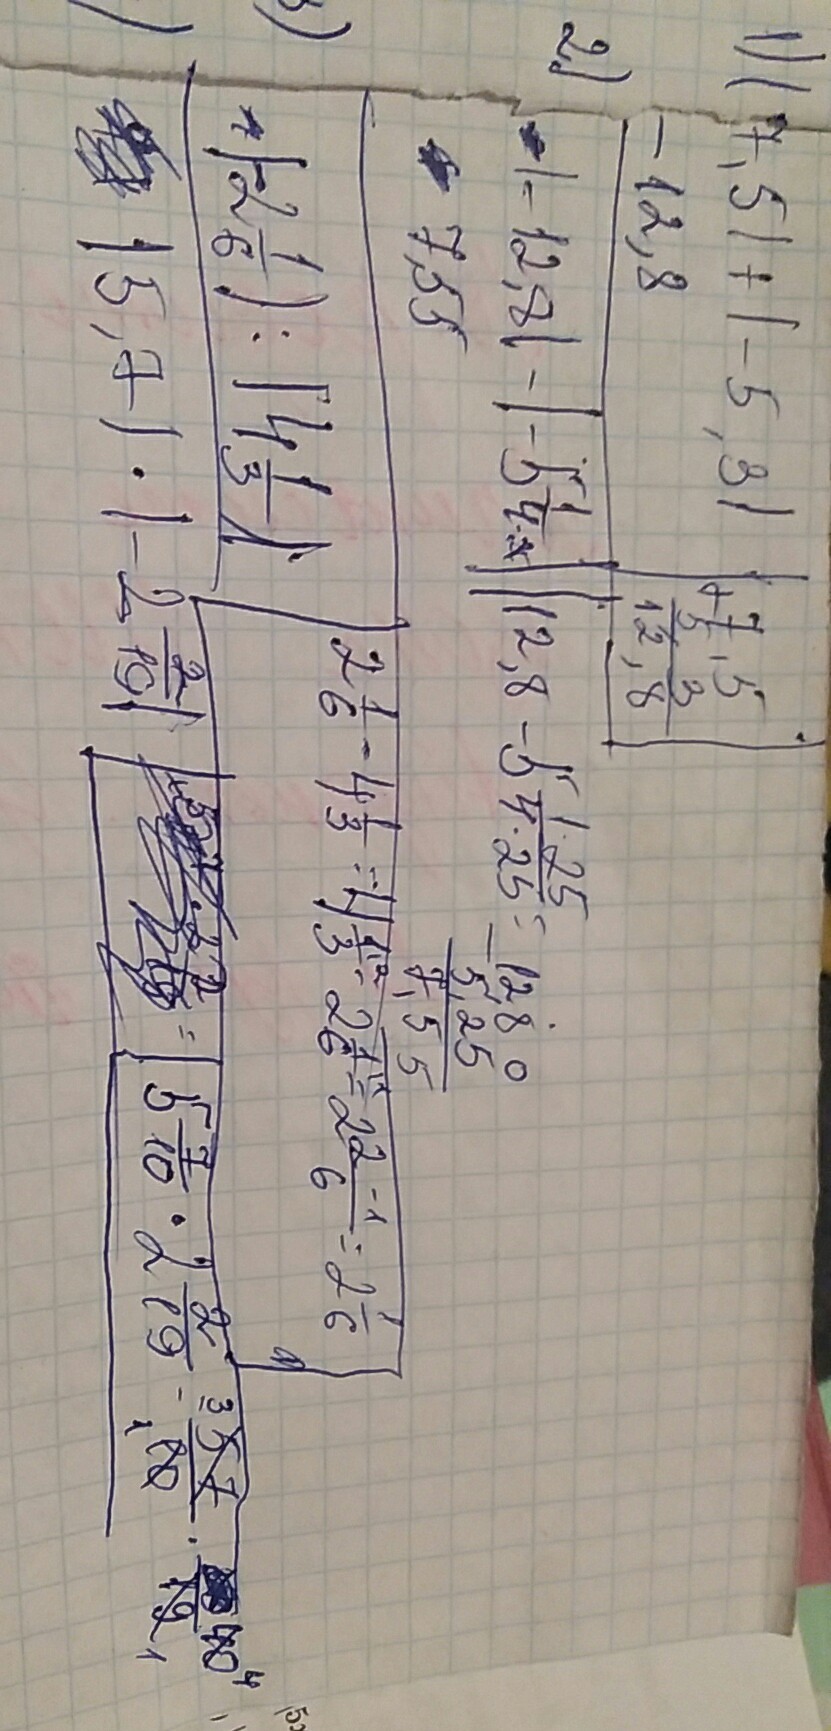 1) |7,5| + |-5,3|
+ 7,5
5,3
12,8
- 12,8
2)
|-12,8| - |-5 1/4|
12,8 - 5 1·25/4·25 =
- 12,80
5,25
7,55
7,55
3)
(-2 1/6) : |4 1/3|
2 1/6 - 4 1/3 = 4 1/3 - 2 1/6 = 2 2-1/6 = 2 1/6
|5,7| · |-2 2/19|
= 5 7/10 · 2 2/19 - 57/10 · 40/19
3 4
1 1